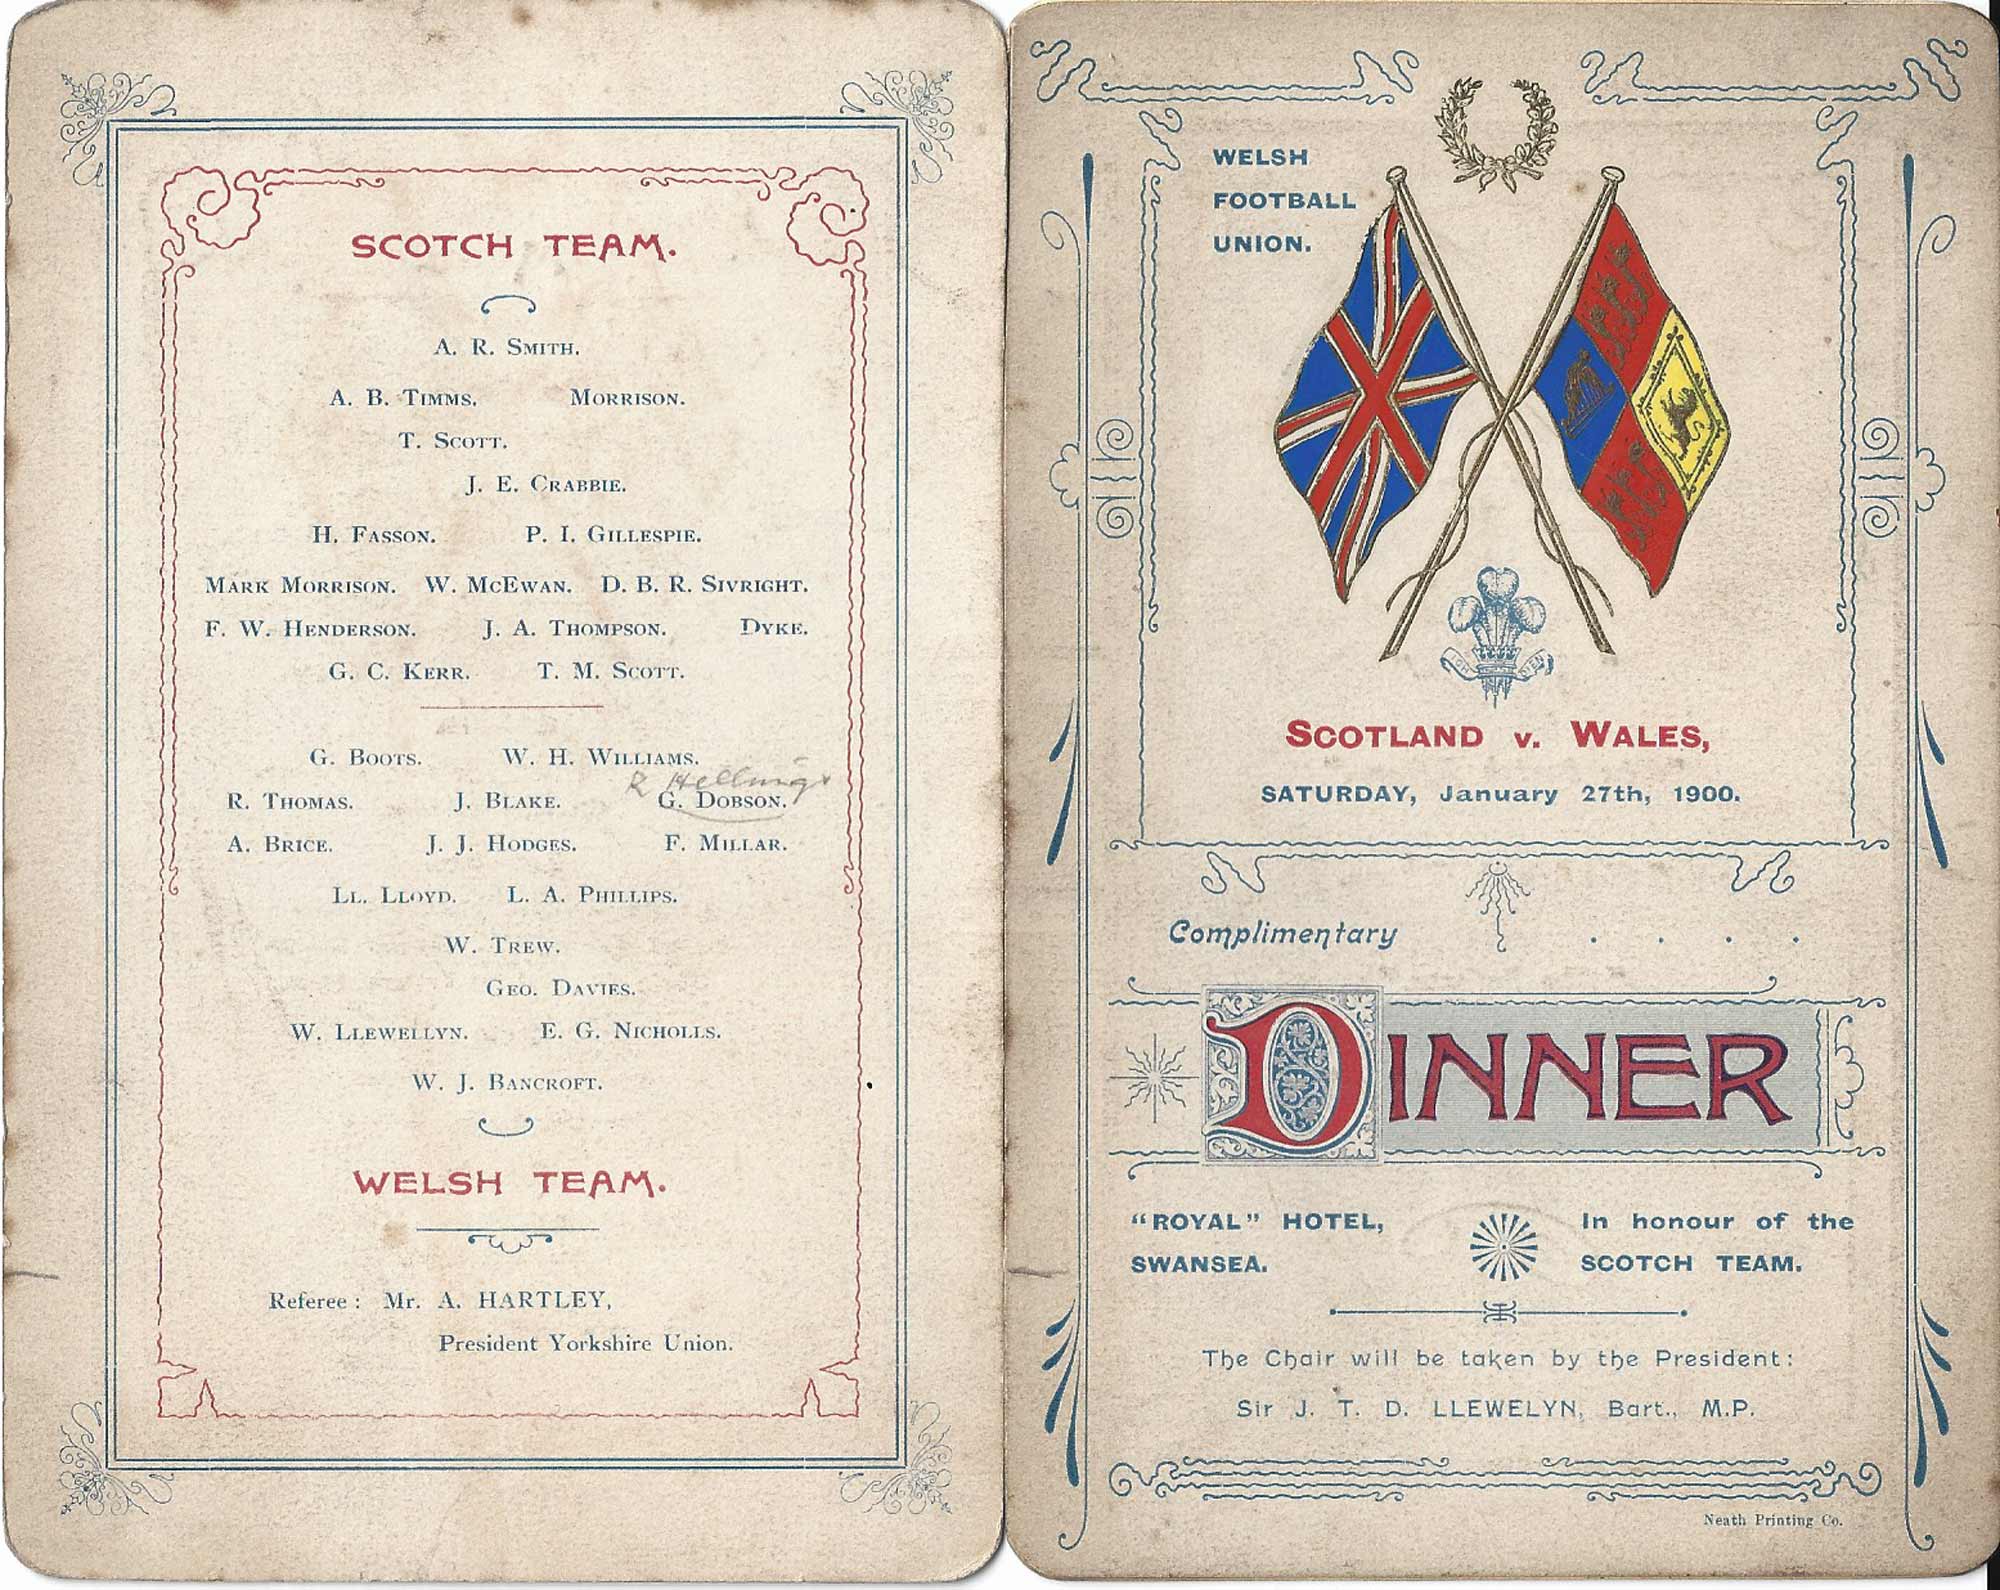 SCOTCH TEAM.
A. R. SMITH.
A. B. TIMMS. MORRISON.
T. SCOTT.
J. E. CRABBIE.
H. FASSON. P. I. GILLESPIE.
MARK MORRISON. W. MCEWAN. D. B. R. SIVRIGHT.
F. W. HENDERSON. J. A. THOMPSON. DYKE.
G. C. KERR. T. M. SCOTT.
G. BOOTS. W. H. WILLIAMS.
R Hellings
R. THOMAS. J. BLAKE. G. DOBSON.
A. BRICE. J. J. HODGES. F. MILLAR.
LL. LLOYD. L. A. PHILLIPS.
W. TREW.
GEO. DAVIES.
W. LLEWELLYN. E. G. NICHOLLS.
W. J. BANCROFT.
WELSH TEAM.
Referee: Mr. A. HARTLEY,
President Yorkshire Union.
WELSH
FOOTBALL
UNION.
ICH DIEN
SCOTLAND v. WALES,
SATURDAY, January 27th, 1900.
Complimentary . . . .
DINNER
"ROYAL" HOTEL,
SWANSEA.
In honour of the
SCOTCH TEAM.
The Chair will be taken by the President:
Sir J. T. D. LLEWELYN, Bart., M.P.
Neath Printing Co.